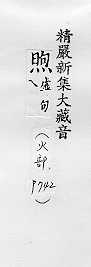 精嚴新集大藏音
煦虗句
(火部,
P742)